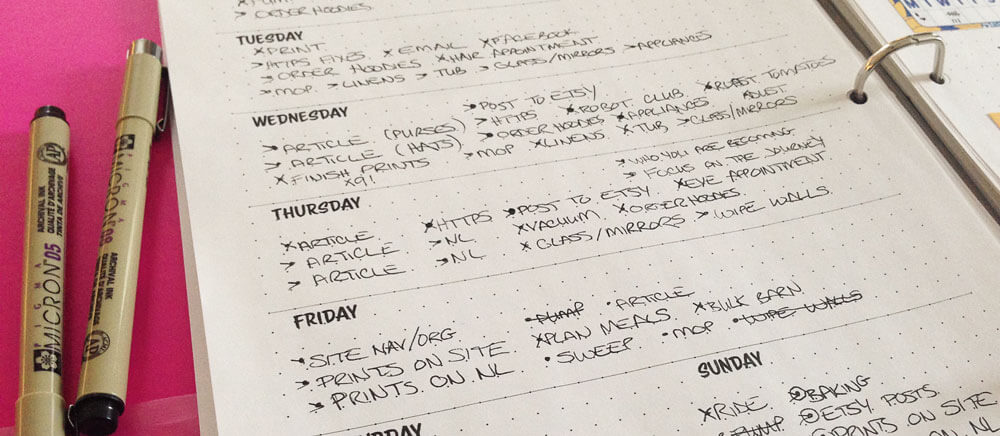 > ORDER HOODIES
TUESDAY
×PRINT ×EMAIL ×FACEBOOK
>HTTPS FIXES ×HAIR APPOINTMENT
>ORDER HOODIES >GLASS/MIRRORS >APPLIANCES
>MOP >LINENS >TUB
WEDNESDAY
>POST TO ETSY
>ARTICLE (PURSES) >HTTPS ×ROBOT CLUB ×ROAST TOMATOES
>ARTICLE (HATS) >ORDER HOODIES ×APPLIANCES ×DUST
×FINISH PRINTS >MOP ×LINENS ×TUB >GLASS/MIRRORS
×9!
>WHO YOU ARE BECOMING
> FOCUS ON THE JOURNEY
THURSDAY
×ARTICLE ×HTTPS >POST TO ETSY ×EYE APPOINTMENT
> ARTICLE >NL ×VACUUM ×ORDER HOODIES
> ARTICLE >NL ×GLASS/MIRRORS > WIPE WALLS
FRIDAY
•PUMP •ARTICLE
SITE NAV/ORG ×PLAN MEALS ×BULK BARN
>PRINTS ON SITE •SWEEP •MOP •WIPE WALLS
>PRINTS ON NL
SUNDAY
×RIDE BAKING
PUMP ETSY POSTS
PRINTS ON SITE
ON NL
MICRON 05
PIGMA
ARCHIVAL INK
QUALITÉ D'ARCHIVAGE
TINTA DE ARCHIVO
AP
MICRON
ARCHIVAL INK
AP